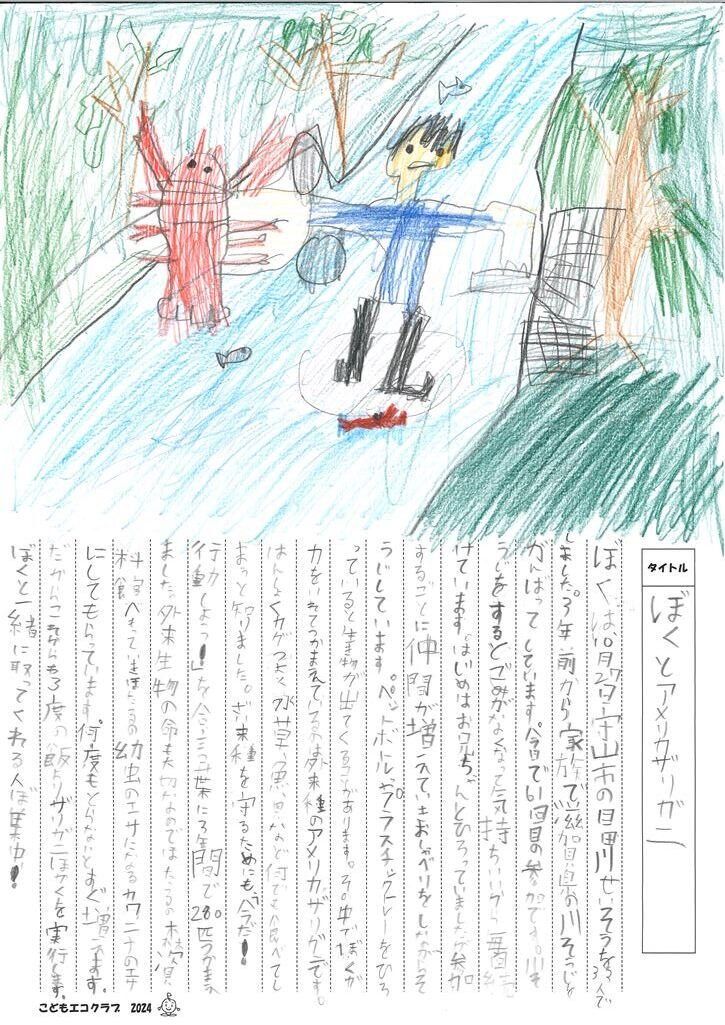 タイトル
ぼくとアメリカザリガニ
ぼくは、10月27日、守山市の目田川せいそうを3人で
しました。3年前から家族で滋賀県の川そうじを
がんばってしています。今日で61回目の参加です。川そ
うじをするとごみがなくなって気持ちいいから毎回続
けています。はじめはお兄ちゃんとひろっていましたが参加
するごとに仲間が増えていきおしゃべりをしながらそ
うじしています。ペットボトルやプラスチックトレーをひろ
っていると生物が出てくることがあります。その中でぼくが
力をいれてつかまえているのは外来種のアメリカザリガニです。
はんしょく力がつよく水草、など何でも食べてし
まうと知りました。ざい来種を守るためにも、今だ!
行動しよっ!」を合言葉に3年間で280匹つかまえ
ました。外来生物の命も大切なのでほたるの森資
料館へもっていきほたるの幼虫のエサになるカワニナのエサ
にしてもらっています。何度もとらないとすぐ増えます。
だからこれからも3度の飯よりザリガニほかくを実行します。
ぼくと一緒に取ってくれる人ぼ集中!
こどもエコクラブ 2024